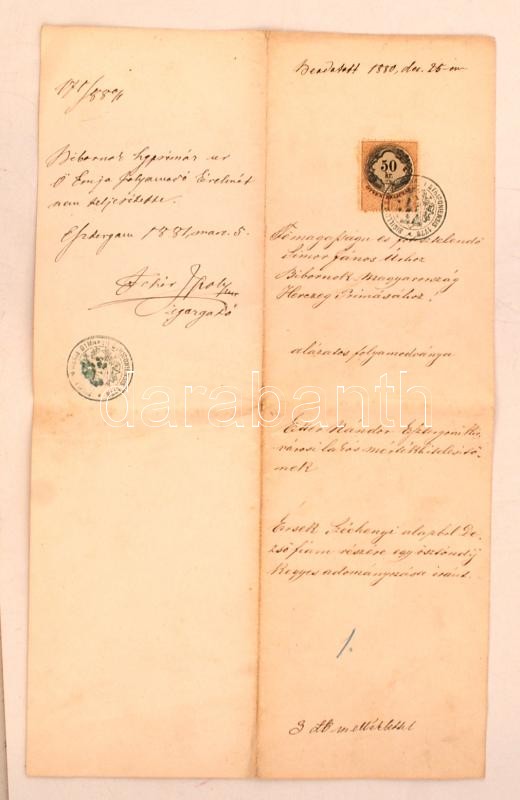 171/881
Bibornok hgprimás ur
Ő Em-ja folyamodó kérelmét
nem teljesítette.
Esztergam 1881. marc. 5.
igazgató
Beadatott 1880, dec. 25-én
50
kr
Főmagasságu és főtisztelendő
Simor János Urhoz
Bibornok Magyarország
Herczeg Primásához!
alázatos folyamodványa
Nándor Esztergom
városi lakós mértékhitelesitő-
nek
Érsek Széchenyi alapból De-
zső fiam részére egy ösztöndij
kegyes adományozása iránt.
1.
3 db melléklettel
darabanth